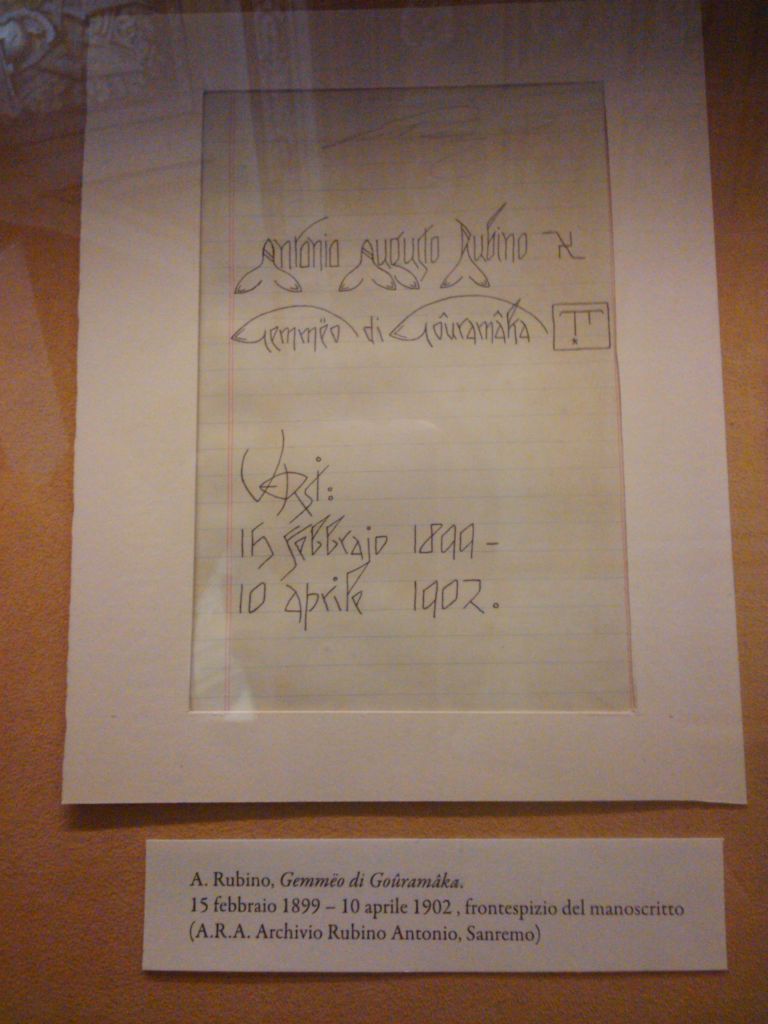 Antonio Augusto Rubino
Gemmëo di Goûramâka
Versi:
15 febbrajo 1899 –
10 aprile 1902.
A. Rubino, Gemmëo di Goûramâka.
15 febbraio 1899 – 10 aprile 1902 , frontespizio del manoscritto
(A.R.A. Archivio Rubino Antonio, Sanremo)